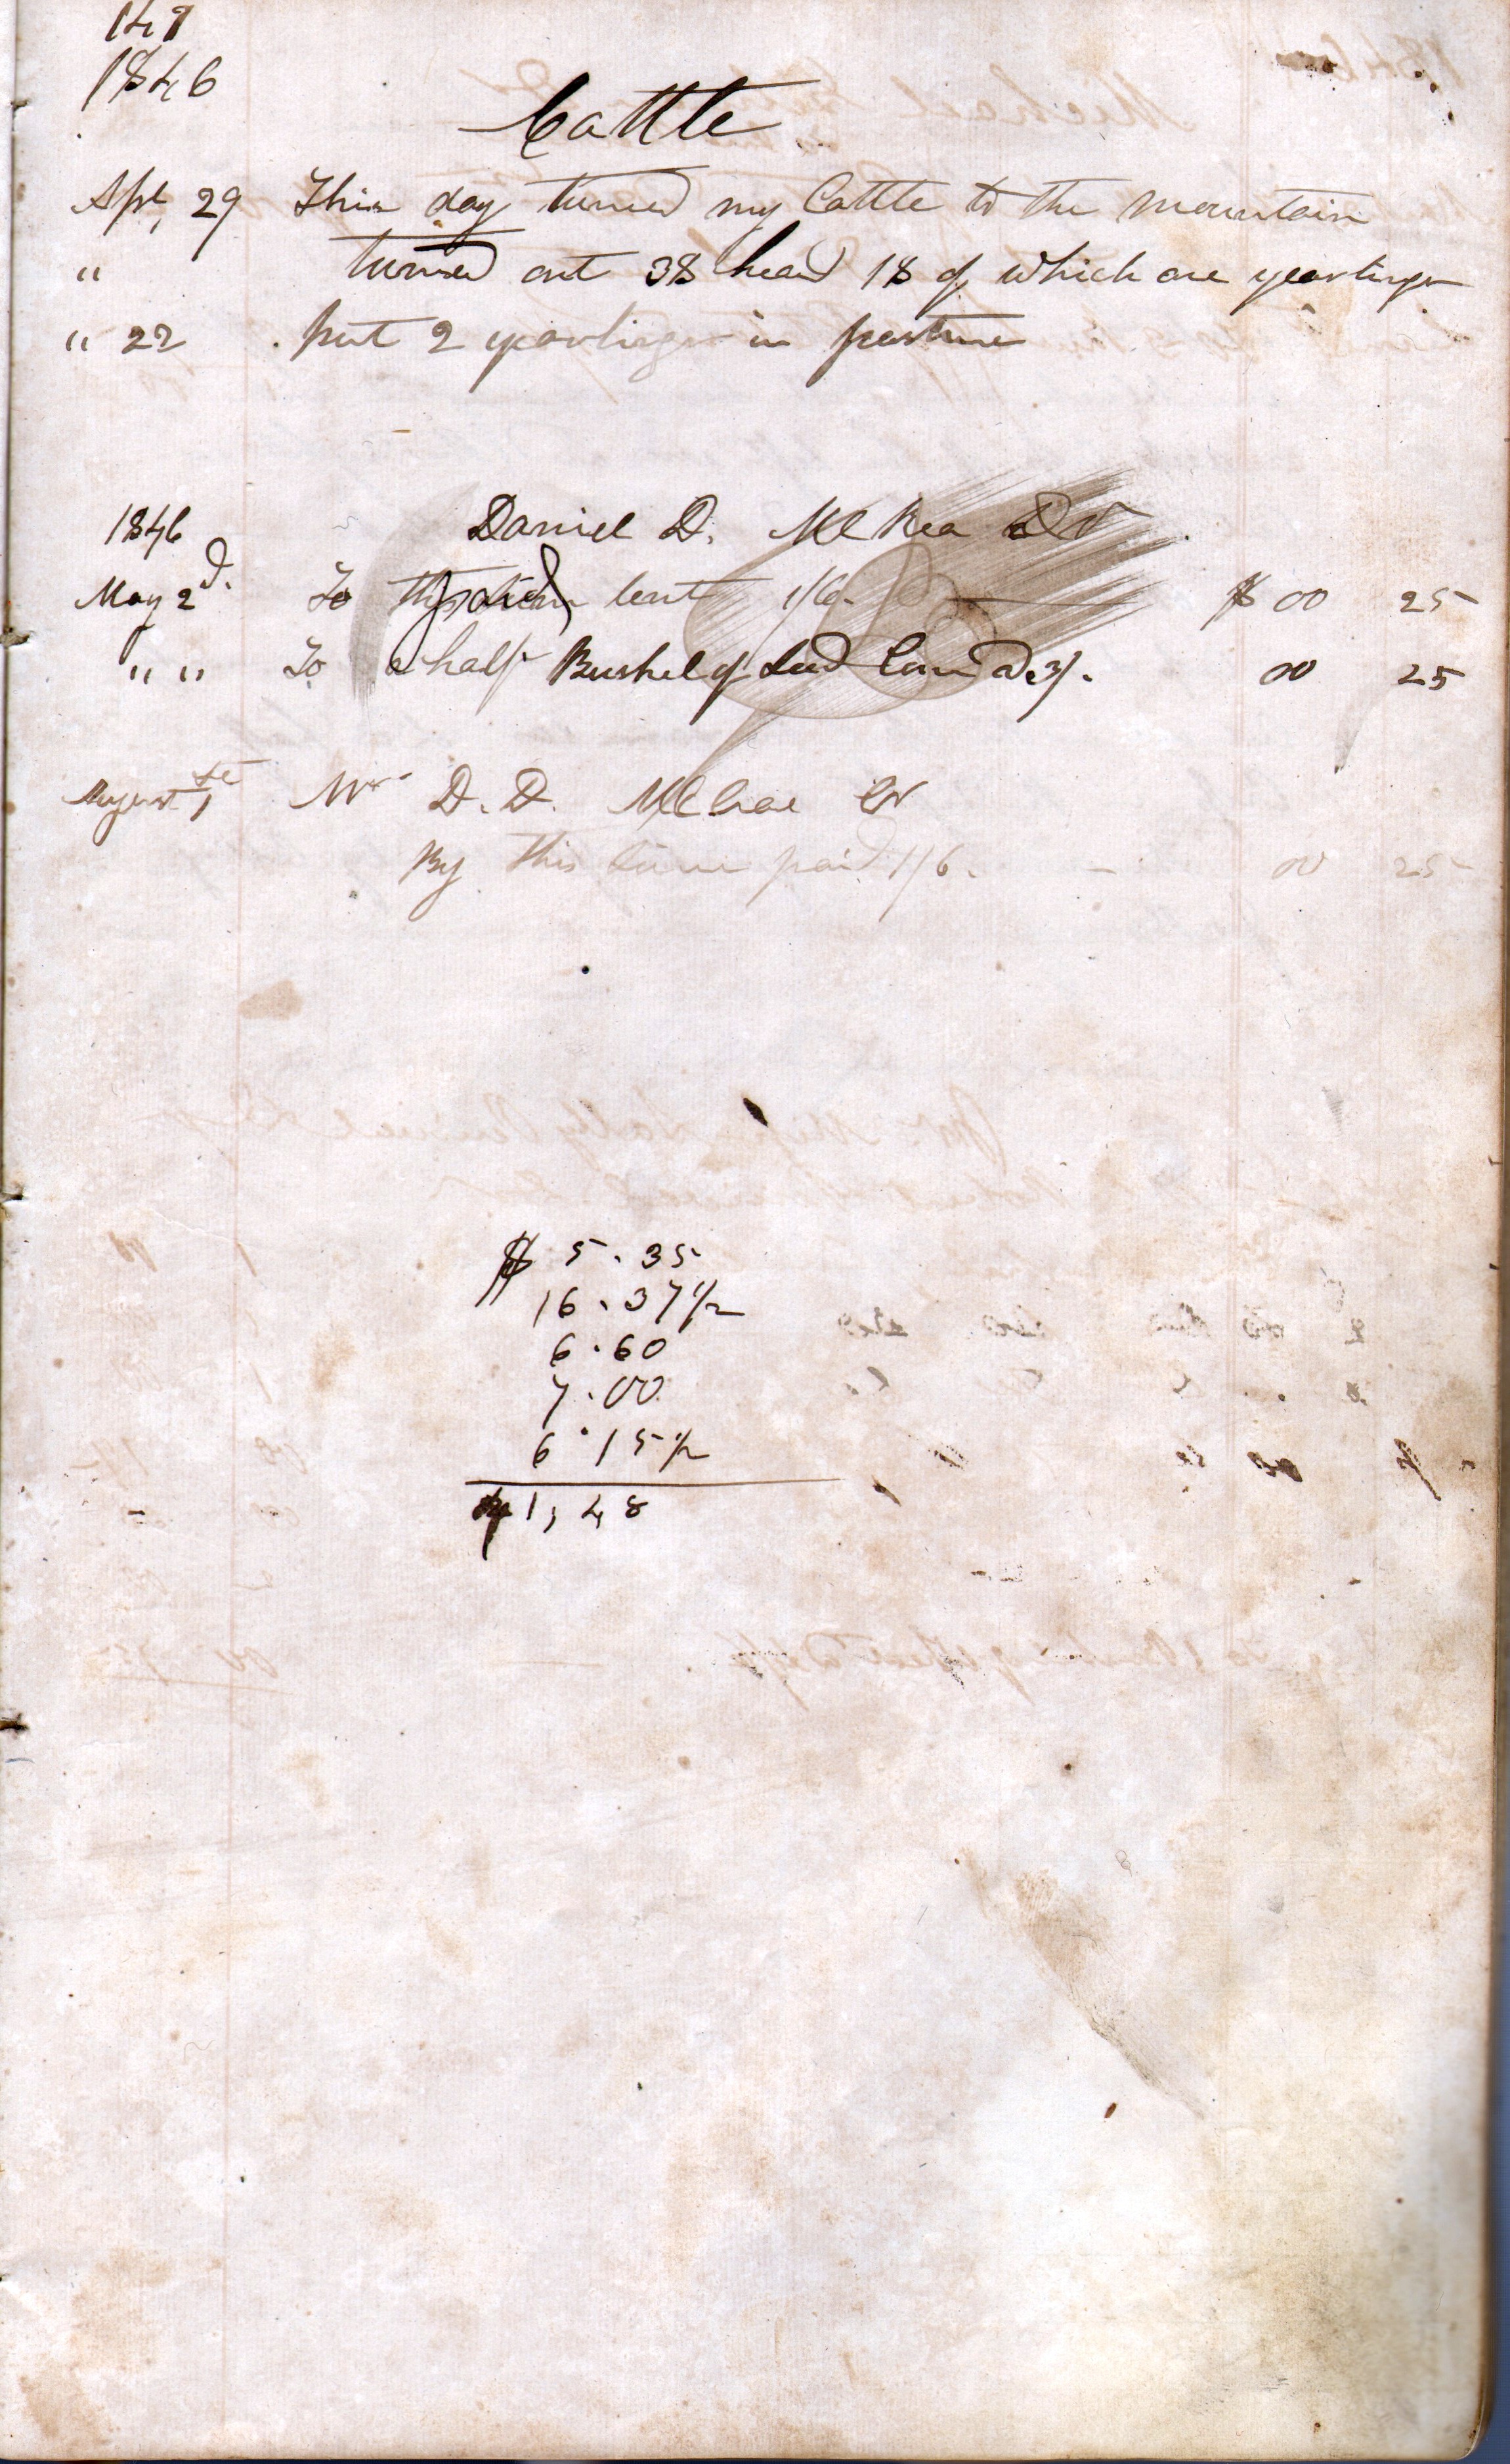 147
1846
Cattle
Apl, 29 This day turned my Cattle to the mountain
" turned out 38 head 18 of which are yearlings
" 22 put 2 yearlings in pasture
1846 Daniel D. McRea Dr
May 2d. To this lent 1/6. $ 00 25
" " To a half Bushel of Seed Corn a 3/. 00 25
August 1st Mr D. D. McCrae Cr
By this paid 1/6. - 00 25
$ 5.35
16.37 1/2
6.60
7.00
6.15 1/2
41,48